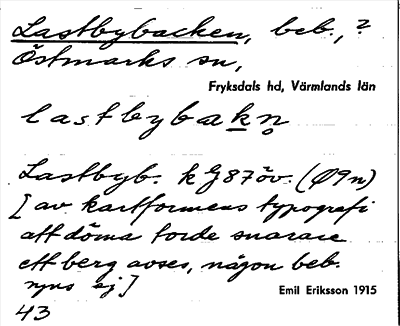 Lastbybacken, beb., ?
Östmarks sn,
Fryksdals hd, Värmlands län
lastbybakn̥
Lastbyb. k G 87 öv. (Ø9n)
[av kartformens typografi
att döma torde snarare
ett berg avses, någon beb.
nyns ej]
Emil Eriksson 1915
43